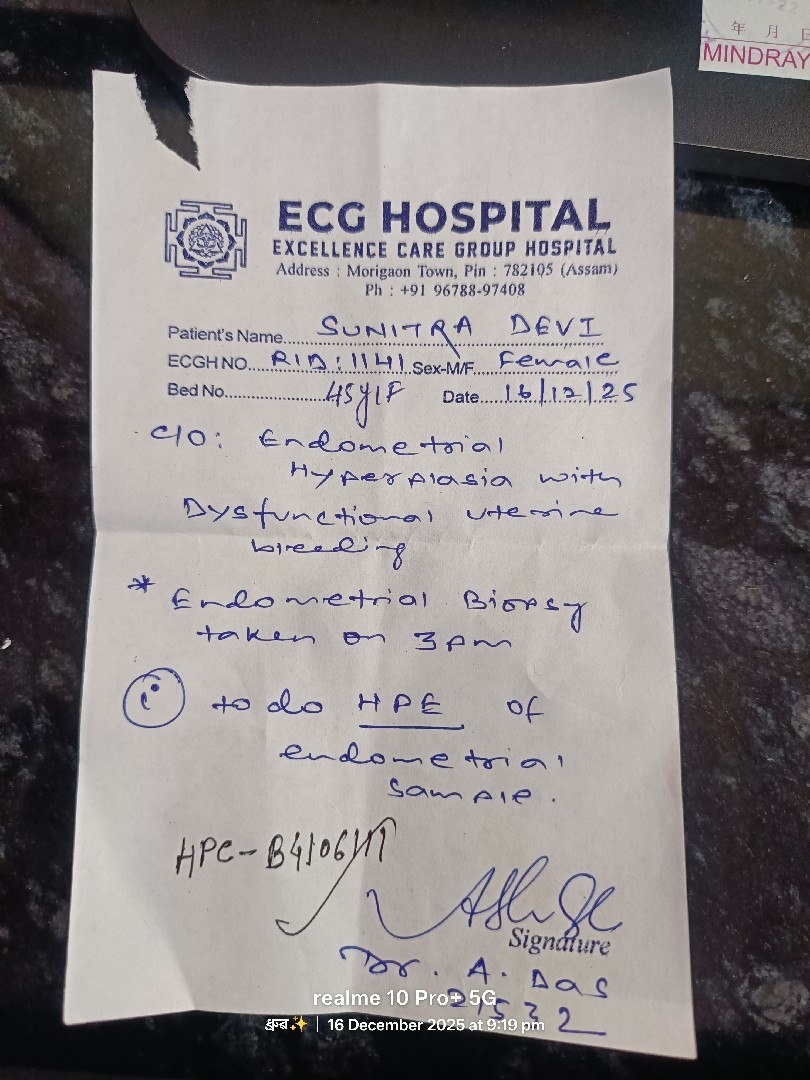 年 月 日
MINDRAY
ECG HOSPITAL
EXCELLENCE CARE GROUP HOSPITAL
Address : Morigaon Town, Pin : 782105 (Assam)
Ph : +91 96788-97408
Patient's Name SUNITRA DEVI
ECGH NO. RID:1141 Sex-M/F. Female
Bed No. 45y/F Date 16/12/25
C/O: Endometrial
Hyperplasia with
Dysfunctional uterine
bleeding
* Endometrial Biopsy
taken on 3pm
i to do HPE of
endometrial
sample.
HPC-B4106/11
Signature
Dr. A. Das
21532
realme 10 Pro+ 5G
ध्रुब✨ | 16 December 2025 at 9:19 pm